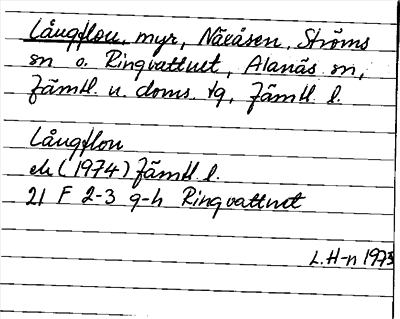 Långflon, myr, Näsåsen, Ströms
sn o. Ringvattnet, Alanäs sn,
Jämtl. n. doms. tg, Jämtl. l.
Långflon
ek (1974) Jämtl. l.
21 F 2-3 g-h Ringvattnet
L. H-n 1973